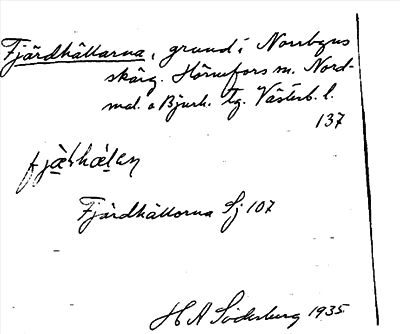 Fjärdhällarna, grund i Norrbyns
skärg. Hörnefors sn. Nord-
mal. o Bjurh. tg. Västerb. l.
137
fjæ̀ḷhæ̀lan
Fjärdhällorna Sj 107
H A Söderberg 1935